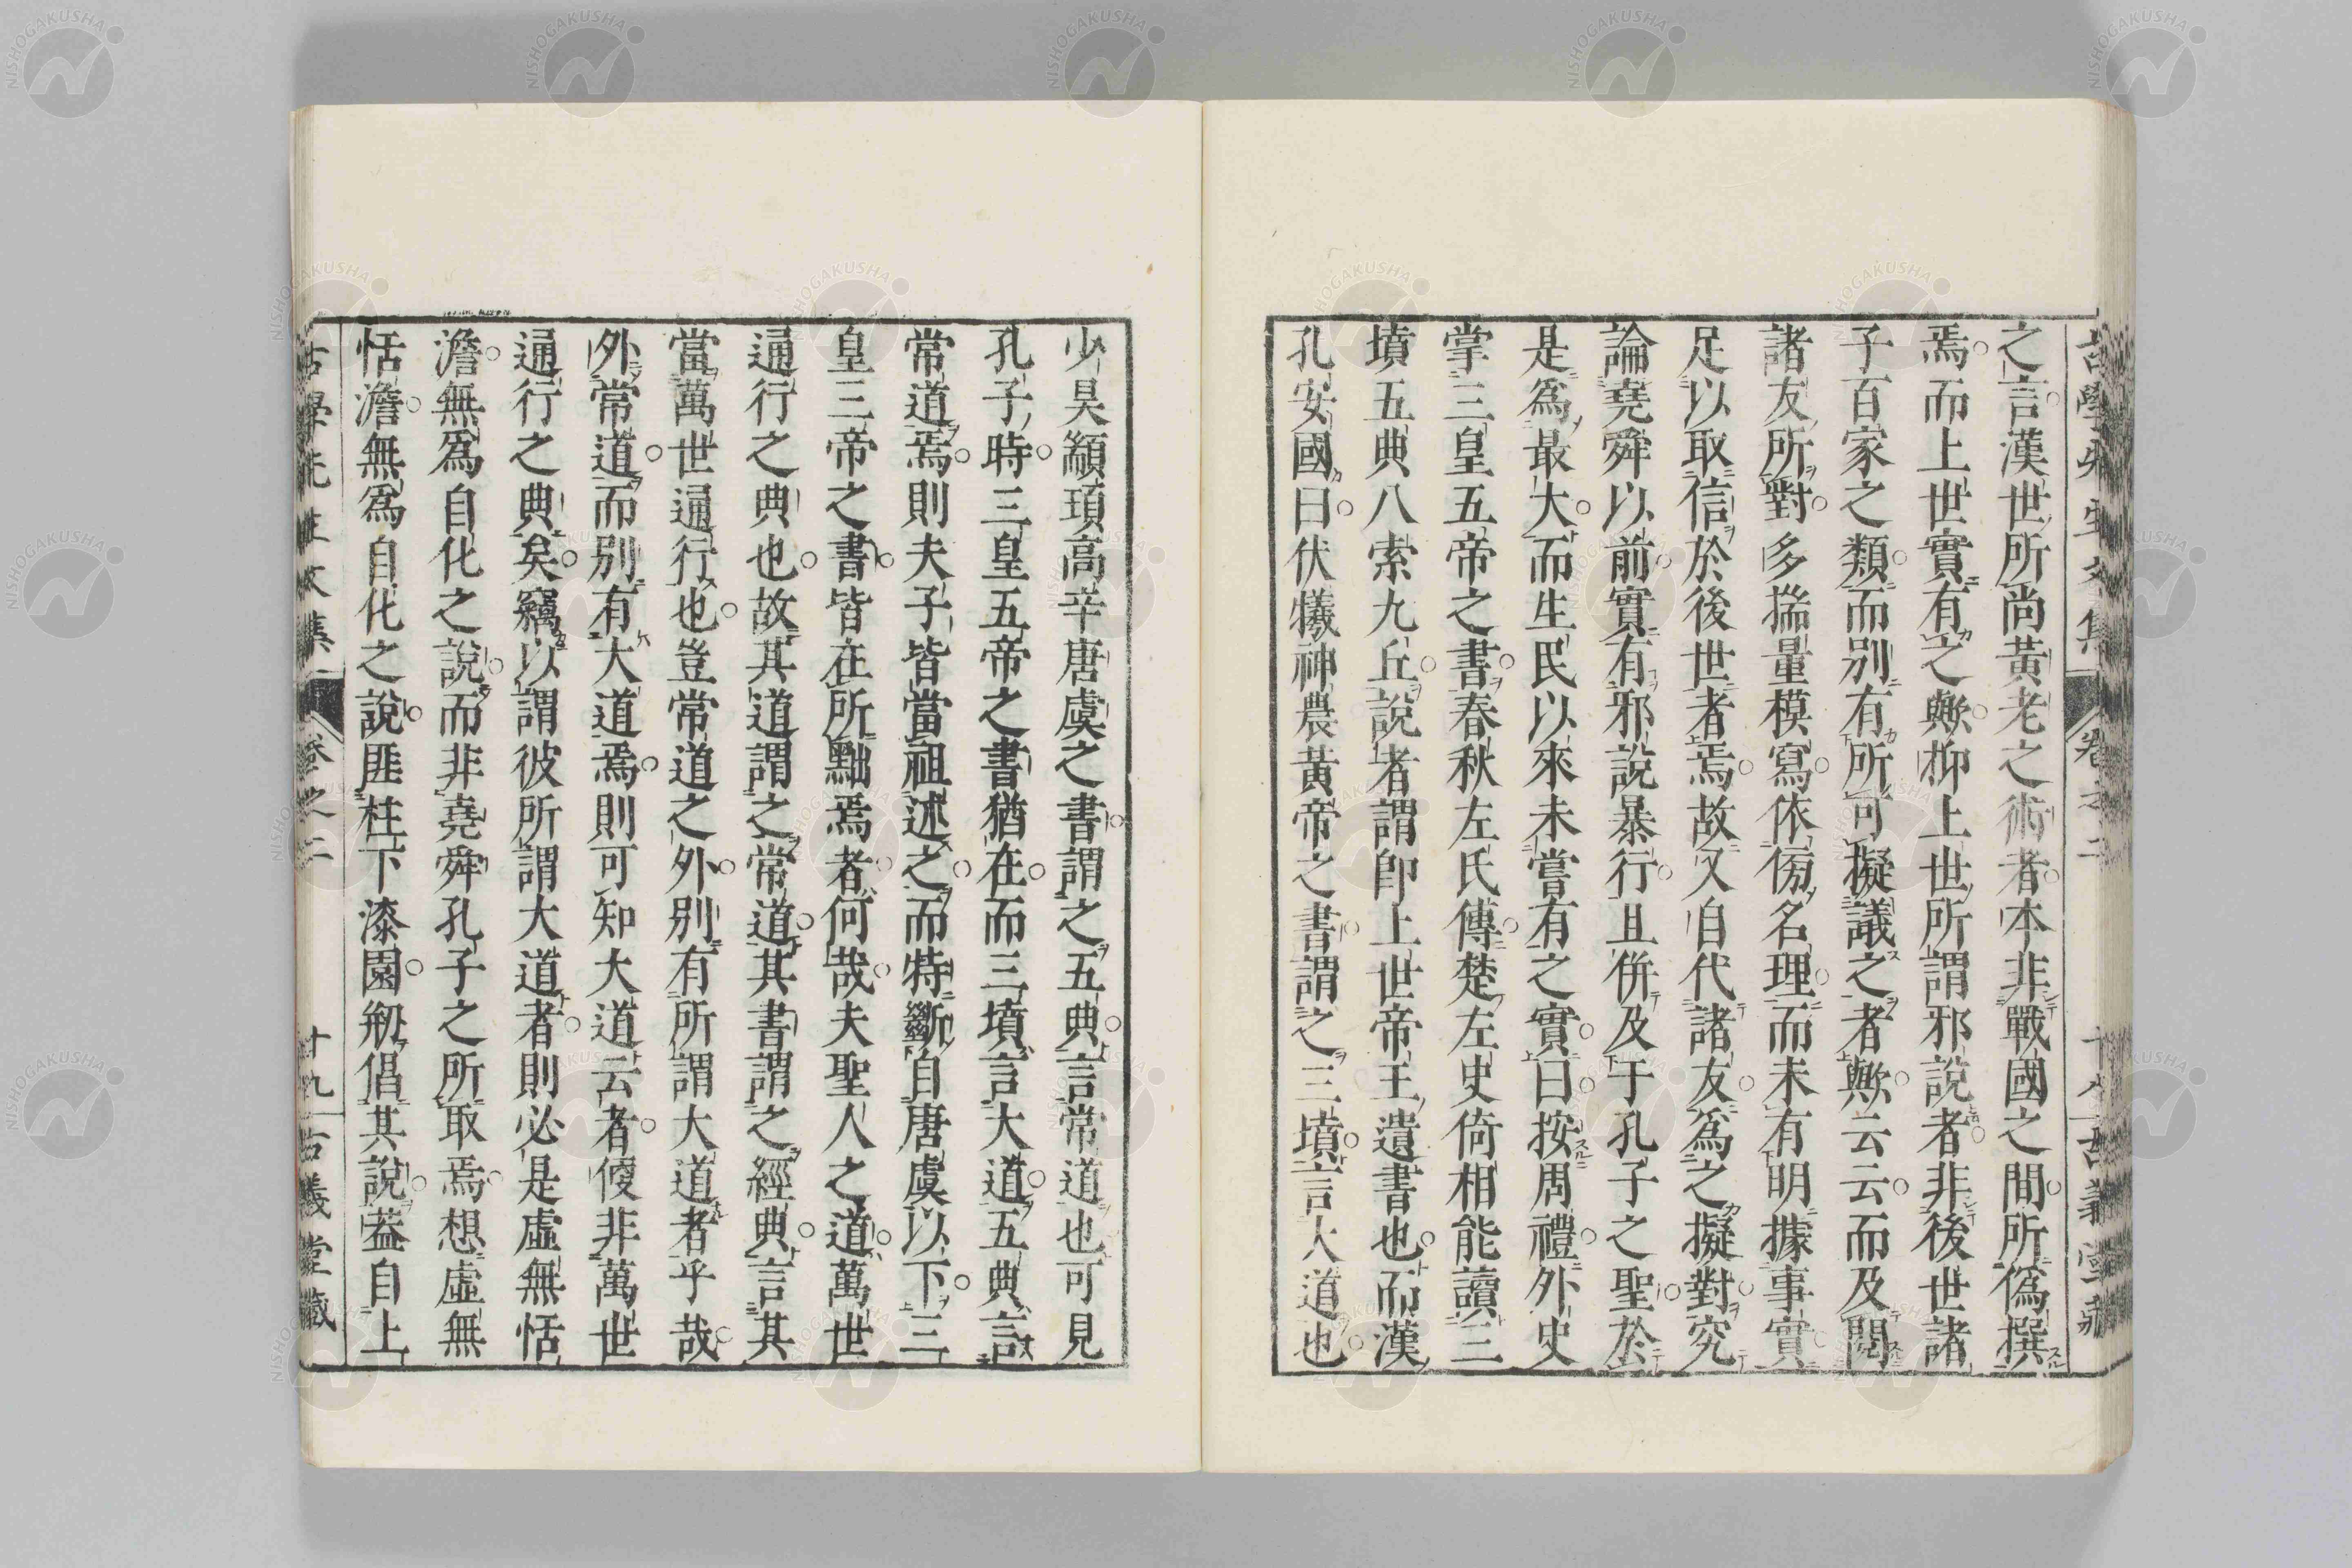 之言漢世所尚黃老之術者本非戰國之間所僞撰
焉而上世實有之歟抑上世所謂邪說者非後世諸
子百家之類而別有所可擬議之者歟云云而及閱
諸友所對多揣量模寫依傍名理而未有明據事實
足以取信於後世者焉故又自代諸友爲之擬對究
論堯舜以前實有邪說暴行且併及于孔子之聖於
是爲最大而生民以來未嘗有之實曰按周禮外史
掌三皇五帝之書春秋左氏傳楚左史倚相能讀三
墳五典八索九丘說者謂卽上世帝王遺書也而漢
孔安國曰伏犧神農黃帝之書謂之三墳言大道也
少昊顓頊高辛唐虞之書謂之五典言常道也可見
孔子時三皇五帝之書猶在而三墳言大道五典言
常道焉則夫子皆當祖述之而特斷自唐虞以下三
皇三帝之書皆在所黜焉者何哉夫聖人之道萬世
通行之典也故其道謂之常道其書謂之經典言其
當萬世通行也豈常道之外別有所謂大道者乎哉
外常道而別有大道焉則可知大道云者偠非萬世
通行之典矣竊以謂彼所謂大道者則必是虛無恬
澹無爲自化之說而非堯舜孔子之所取焉想虛無
恬澹無爲自化之說匪柱下漆園剏倡其說葢自上
古學先生文集 卷之二 十九 古義堂藏
NISHOGAKUSHA